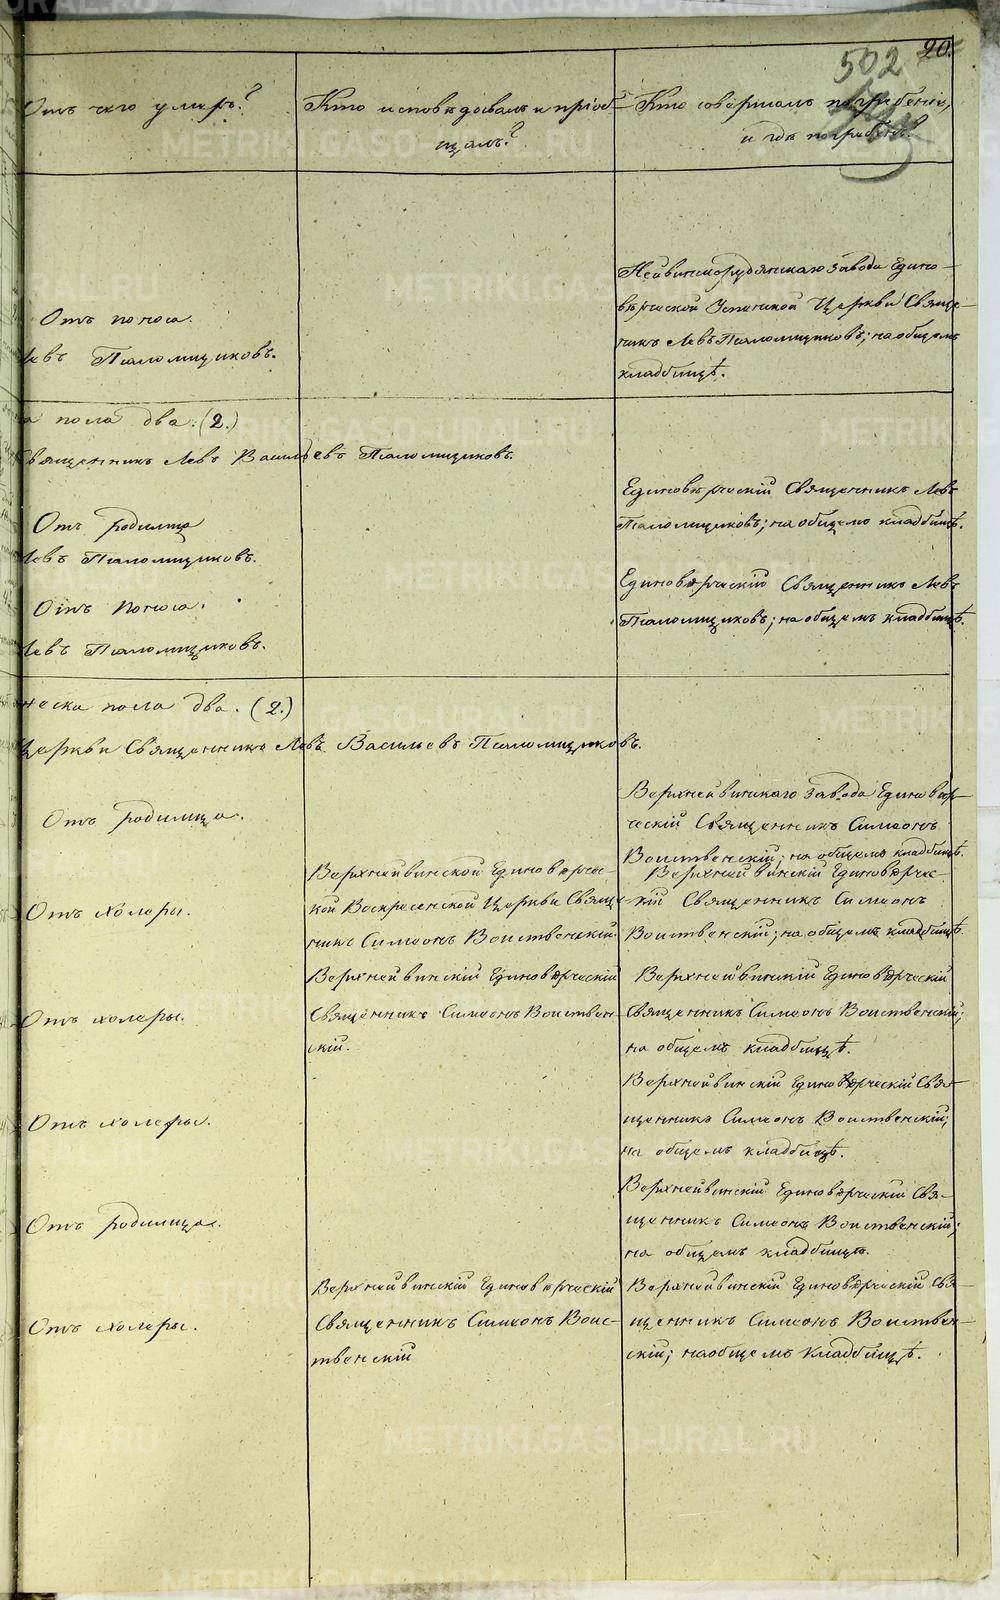 20.
502
Отъ чего умеръ?
Кто исповѣдывалъ и пріоб-
щалъ?
Кто совершалъ погребеніе,
и гдѣ погребенъ?
Нейвинскорудянскаго завода Едино-
вѣрческой Успенской Церкви Священ-
никъ Левъ Псаломщиковъ; на общемъ
кладбищѣ.
Отъ поноса.
Левъ Псаломщиковъ.
а пола два. (2.)
Священникъ Левъ Васильевъ Псаломщиковъ.
Отъ родимца
Левъ Псаломщиковъ.
Единовѣрческій Священникъ Левъ
Псаломщиковъ; на общемъ кладбищѣ.
Отъ поноса.
Левъ Псаломщиковъ.
Единовѣрческій Священникъ Левъ
Псаломщиковъ; на общемъ кладбищѣ.
неска пола два. (2.)
Церкви Священникъ Левъ Васильевъ Псаломщиковъ.
Отъ родимца.
Верхнейвинскаго завода Единовѣр-
ческій Священникъ Симеонъ
Воинственскій; на общемъ кладбищѣ.
Отъ холеры.
Верхнейвинской Единовѣрчес-
кой Воскресенской Церкви Священ-
никъ Симеонъ Воинственскій.
Верхнейвинскій Единовѣрчес-
кій Священникъ Симеонъ
Воинственскій; на общемъ кладбищѣ.
Отъ холеры.
Верхнейвинскій Единовѣрческій
Священникъ Симеонъ Воинствен-
скій.
Верхнейвинскій Единовѣрческій
Священникъ Симеонъ Воинственскій;
на общемъ кладбищѣ.
Отъ холеры.
Верхнейвинскій Единовѣрческій Свя-
щенникъ Симеонъ Воинственскій;
на общемъ кладбищѣ.
Отъ родимца.
Верхнейвинскій Единовѣрческій Свя-
щенникъ Симеонъ Воинственскій;
на общемъ кладбищѣ.
Отъ холеры.
Верхнейвинскій Единовѣрческій
Священникъ Симеонъ Воинс-
твенскій
Верхнейвинскій Единовѣрческій Свя-
щенникъ Симеонъ Воинствен-
скій; на общемъ кладбищѣ.
METRIKI.GASO-URAL.RU